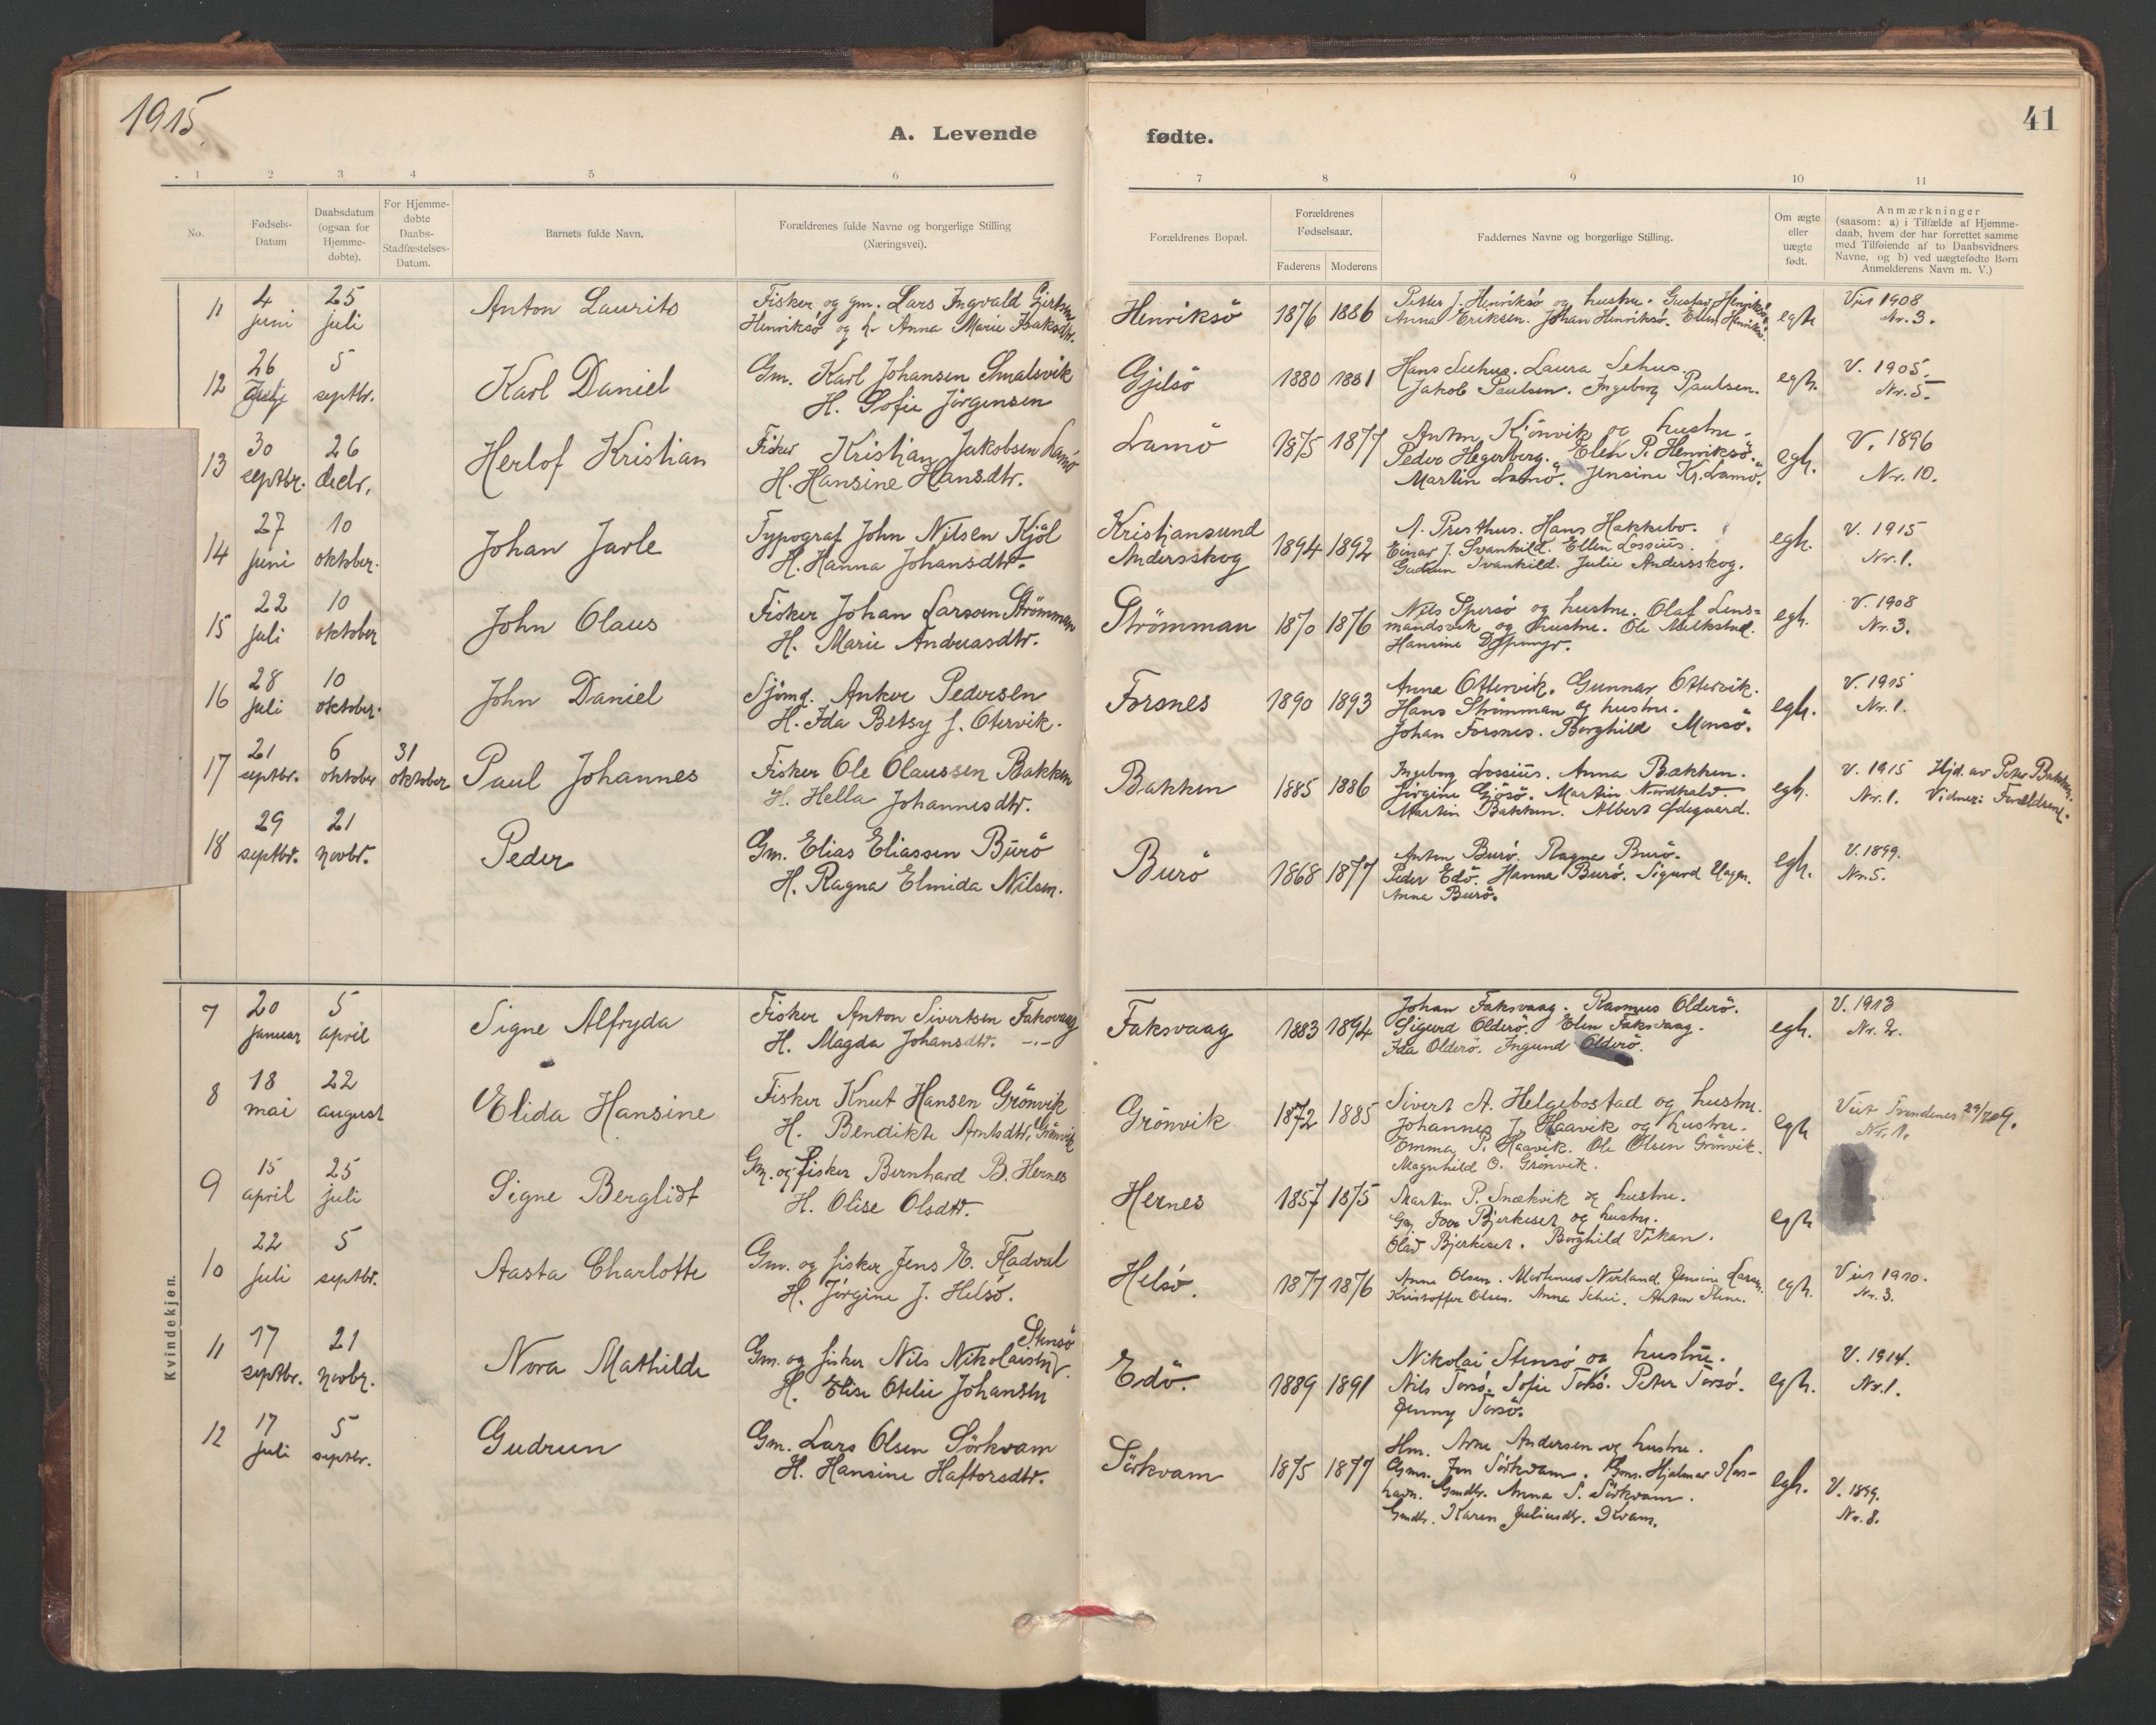 1915
A. Levende fødte.
41
1 2 3 4 5 6 7 8 9 10 11
No.
Fødsels-
Datum
Daabsdatum
(ogsaa for
Hjemme-
døbte).
For Hjemme-
døbte
Daabs-
Stadfæstelses-
Datum.
Barnets fulde Navn.
Forældrenes fulde Navne og borgerlige Stilling
(Næringsvei).
Forældrenes Bopæl.
Forældrenes
Fødselsaar.
Faderens Moderens
Faddernes Navne og borgerlige Stilling.
Om ægte
eller
uægte
født.
Anmærkninger
(saasom: a) i Tilfælde af Hjemme-
daab, hvem der har forrettet samme
med Tilføiende af to Daabsvidners
Navne, og b) ved uægtefødte Børn
Anmelderens Navn m. V.)
11
4
juni
25
juli
Anton Laurits
Fisker og gm. Lars Ingvald
Henriksö og h. Anna Marie Isaksdtr.
Henriksö
1876 1886
Petter J. Henriksö og hustru. Gustav Henriksö
Anna Eriksen. Johan Henriksö. Ellen Henriksö.
egte
Viet 1908
Nr. 3.
12
26
Juli
5
septbr.
Karl Daniel
Gm. Karl Johansen Smalsvik
H. Sofie Jörgensen
Gjelsö
1880 1881
Hans Seehus. Laura Sehus.
Jakob Paulsen. Ingeborg Paulsen.
egt.
V. 1905.
Nr. 5.
13
30
septbr.
26
decbr.
Herlof Kristian
Fisker Kristian Jakobsen Lamö
H. Hansine Hansdtr.
Lamö
1875 1877
Anton Kjönvik og hustru.
Peder Hegerberg. Elen P. Henriksö.
Martin Lamö. Jensine Kr. Lamö.
egt.
V. 1896
Nr. 10.
14
27
juni
10
oktober.
Johan Jarle
Typograf John Nilsen Kjöl
H. Hanna Johansdtr.
Kristiansund
Andersskog
1894 1892
A. Presthus. Hans Hakkebo.
Einar J. Svanhild. Ellen Lossius.
Gudrun Svanhild. Julie Andersskog.
egt.
V. 1915
Nr. 1.
15
22
juli
10
oktober
John Olaus
Fisker Johan Larssen Strömmen
H. Marie Andreasdtr.
Strömman
1870 1876
Nils Spersö og hustru. Olaf Lens=
mandsvik og hustru. Ole Melkstad.
Hansine
egt.
V. 1908
Nr. 3.
16
28
juli
10
oktober.
John Daniel
Sjömd. Anker Pedersen
H. Ida Betsy J. Otervik.
Forsnes
1890 1893
Anna Ottervik. Gunnar Ottervik.
Hans Strömman og hustru.
Johan Forsnes. Borghild Monsö.
egt.
V. 1915
Nr. 1.
17
21
septbr.
6
oktober
31
oktober
Paul Johannes
Fisker Ole Olaussen Bakken
H. Hella Johannesdtr.
Bakken
1885 1886
Ingeborg Lossius. Anna Bakken.
Jörgine Gjösö. Martin Nordhald.
Martin Bakken. Albert Ödegaard.
egt.
V. 1915 Hjd. av Peter Bakken.
Nr. 1. Vidner: Forældrene.
18
29
septbr.
21
novbr.
Peder
Gm. Elias Eliassen Burö
H. Ragna Elmida Nilsen.
Burö
1868 1877
Anton Burö. Ragna Burö.
Peder Edö. Hanna Burö. Sigurd Hagen.
Anna Burö.
egt.
V. 1899.
Nr. 5.
Kvindekjøn.
7
20
januar
5
april
Signe Alfryda
Fisker Anton Sivertsen Faksvaag
H. Magda Johansdtr. -.-
Faksvaag
1883 1894
Johan Faksvaag. Rasmus Olderö.
Sigurd Olderö. Elen Faksvaag.
Ida Olderö. Ingund Olderö.
egt.
V. 1913
Nr. 2.
8
18
mai
22
august
Elida Hansine
Fisker Knut Hansen Grönvik
H. Bendikte Arntsdtr. Grönvik
Grönvik
1872 1885
Sivert A. Helgebostad og hustru.
Johannes J. Haavik og hustru.
Emma P. Haavik. Ole Olsen Grönvik.
Magnhild O. Grönvik.
egt.
Viet Trondenes
Nr. 1.
9
15
april
25
juli
Signe Berglidt
Gm. og fisker Bernhard B. Hernes
H. Olise Olsdtr.
Hernes
1857 1875
Martin P. Snekvik og hustru.
Gm. Iver Bjerkeset og hustru.
Olav Bjerkeset. Borghild Vikan.
egt
10
22
juli
5
septbr.
Aasta Charlotte
Gm. og fisker Jens E. Fladval
H. Jörgine J. Helsö.
Helsö.
1877 1876
Anne Olsen. Martinus Nerland. Jensine Larsen.
Kristoffer Olsen. Anna Schei. Anton Stene.
egt.
Viet 1910.
Nr. 3.
11
17
septbr.
21
novbr.
Nora Mathilde
Stensö
Gm. og fisker Nils Nikolaisen
H. Elise Otelie Johansen
Edö.
1889 1891
Nikolai Stensö og hustru.
Nils Torsö. Sofie Torsö. Peter Torsö.
Jenny Torsö.
egt.
V. 1914.
Nr. 1.
12
17
juli
5
septbr.
Gudrun
Gm. Lars Olsen Sörkvam
H. Hansine Haftorsdtr.
Sörkvam
1875 1877
Hm. Arne Andersen og hustru.
Gms. Jon Sörkvam. Gms. Hjalmar
Gmdtr. Anna S. Sörkvam.
Gmdtr. Karen Juliusdtr. Kvam.
egt.
V. 1899.
Nr. 8.